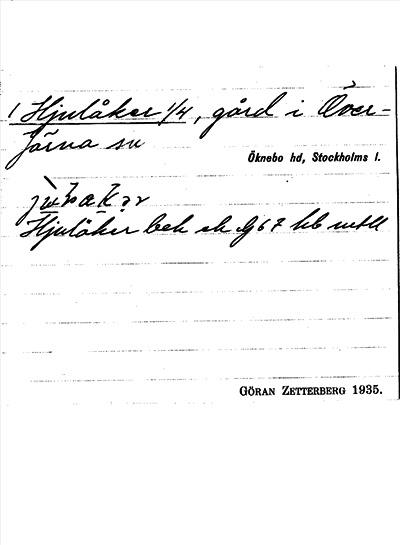 1 Hjulåker 1/4, gård i Över-
Järna sn
Öknebo hd, Stockholms l.
Hjulåker bek sk Jb
GÖRAN ZETTERBERG 1935.